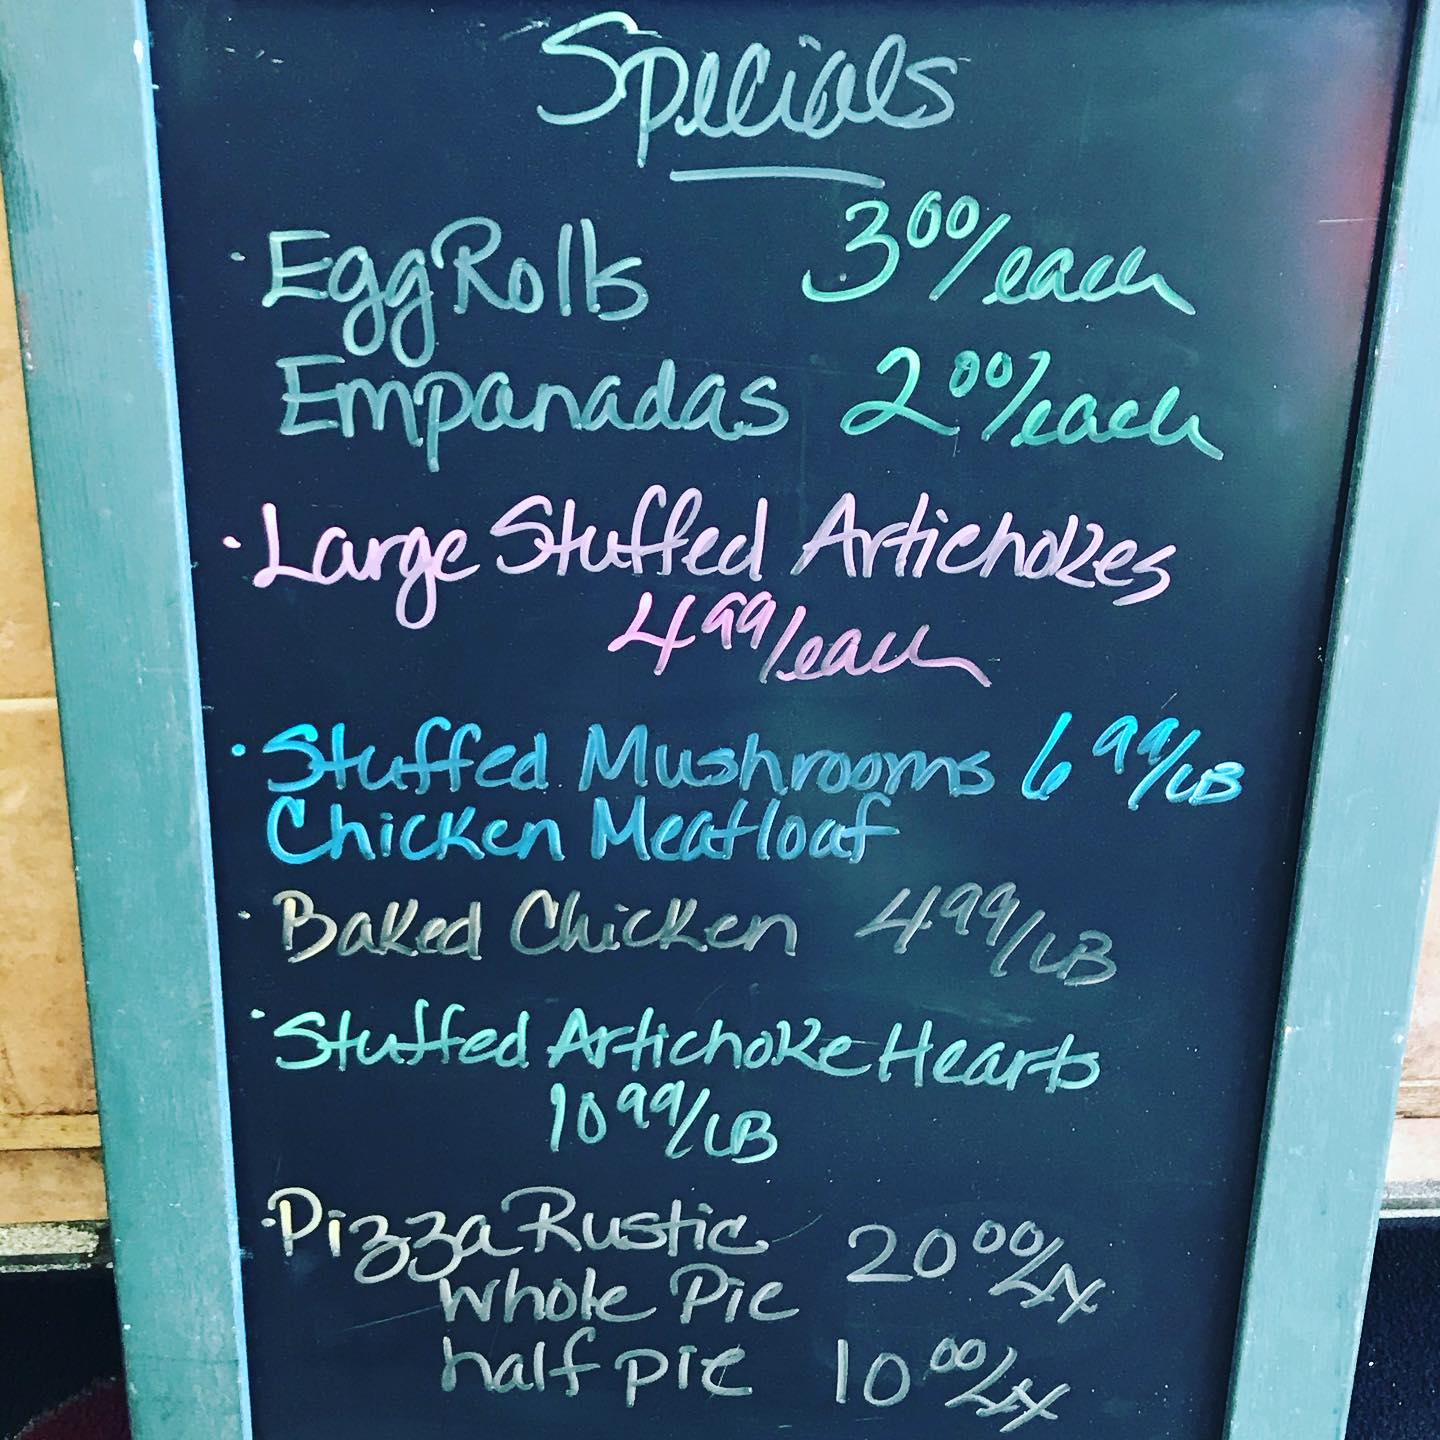 Specials
· Egg Rolls 3.00/each
Empanadas 2.00/each
· Large Stuffed Artichokes
4.99/each
· Stuffed Mushrooms 6.99/LB
Chicken Meatloaf
· Baked Chicken 4.99/LB
· Stuffed Artichoke Hearts
10.99/LB
· Pizza Rustic 20.00/
Whole Pie
half pie 10.00/